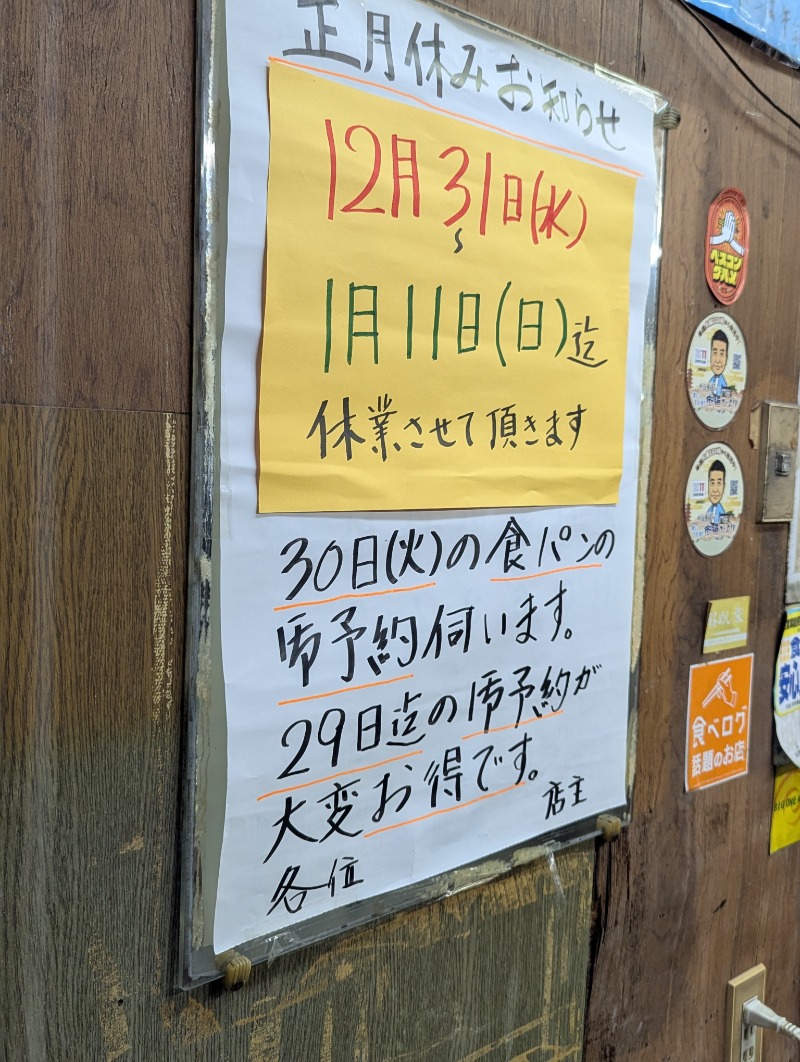 正月休みお知らせ
12月31日(水)
〜
1月11日(日)迄
休業させて頂きます
30日(火)の食パンの
御予約伺います。
29日迄の御予約が
大変お得です。
店主
各位
ベスコン
グルメ
食べログ
話題のお店